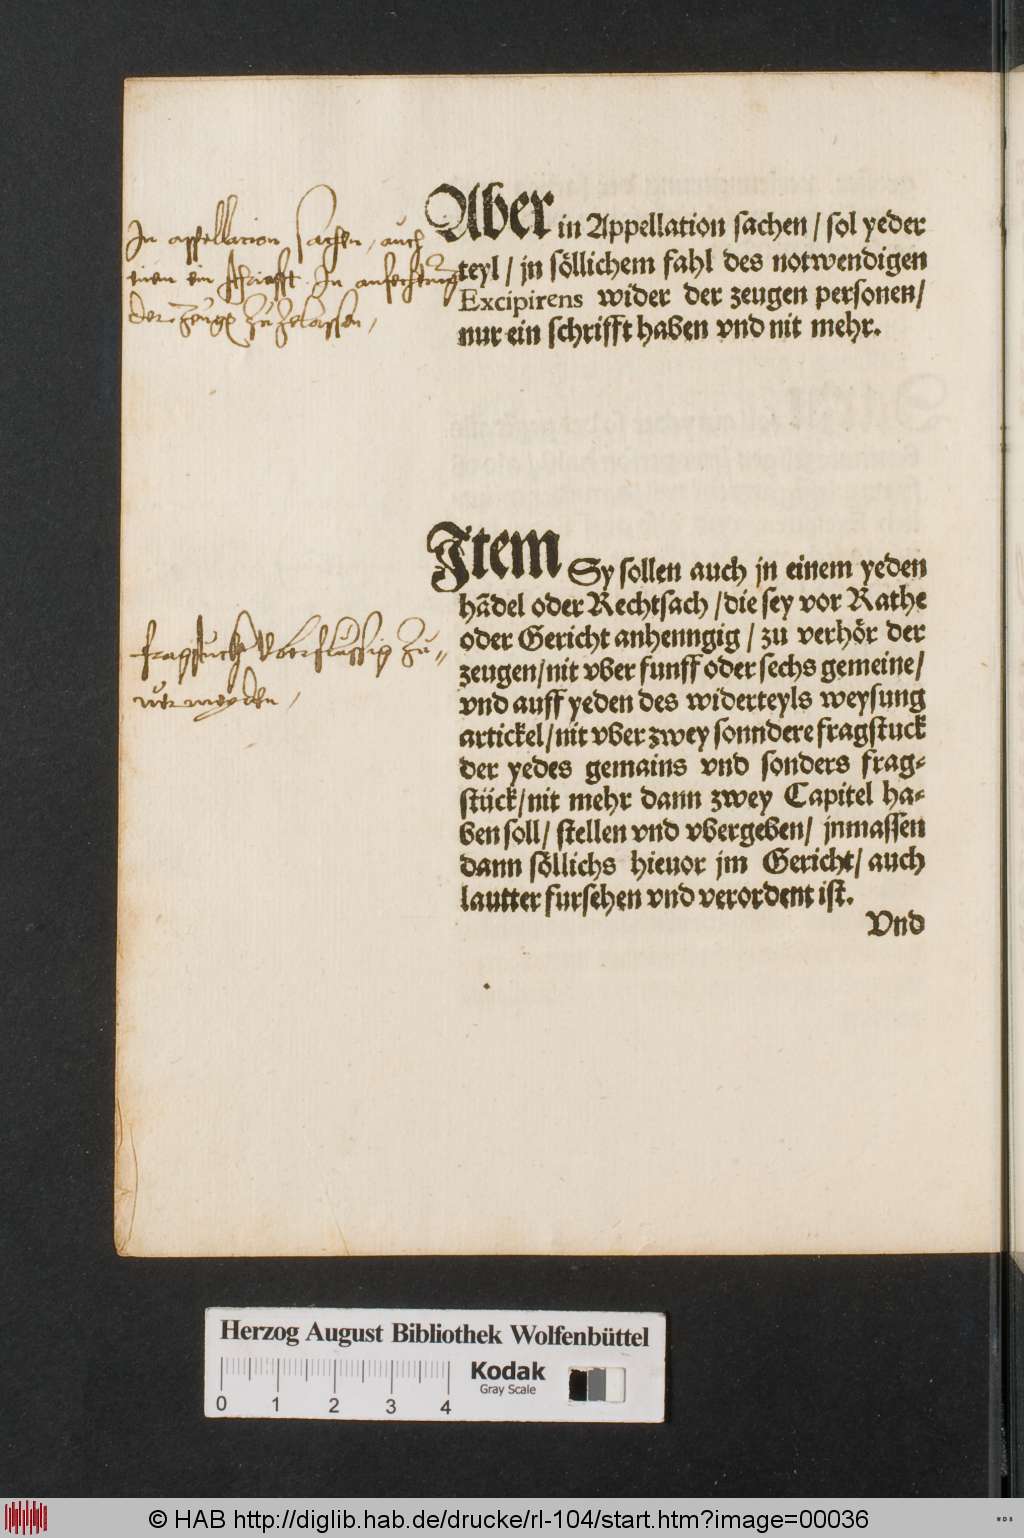 In appellacion sachen, auch
nuen ein schriefft In anfechtung
der Zeuge Zuzelassen,
Aber in Appellation sachen / sol yeder
teyl / jn söllichem fahl des notwendigen
Excipirens wider der zeugen personen /
nur ein schrifft haben vnd nit mehr.
Item Sy sollen auch jn einem yeden
hãdel oder Rechtsach / die sey vor Rathe
oder Gericht anhenngig / zu verhör der
zeugen / nit vber funff oder sechs gemeine /
vnd auff yeden des widerteyls weysung
artickel / nit vber zwey sonndere fragstuck
der yedes gemains vnd sonders frag-
stück / nit mehr dann zwey Capitel ha-
ben soll / stellen vnd vbergeben / jnmassen
dann söllichs hieuor jm Gericht / auch
lautter fursehen vnd verordent ist.
Vnd
fragstuckh Vberflussig Zu-
uermeyden,
Herzog August Bibliothek Wolfenbüttel
0 1 2 3 4
Kodak
Gray Scale
© HAB http://diglib.hab.de/drucke/rl-104/start.htm?image=00036